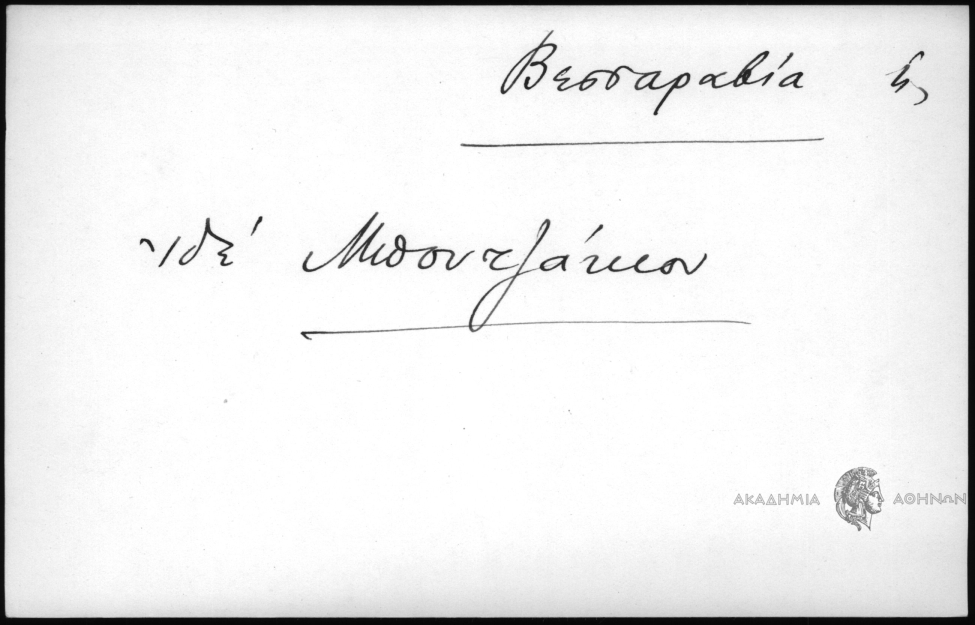 Βεσσαραβία ἡ
Ἰδέ Μπουτζάκιον
ΑΚΑΔΗΜΙΑ ΑΘΗΝΩΝ